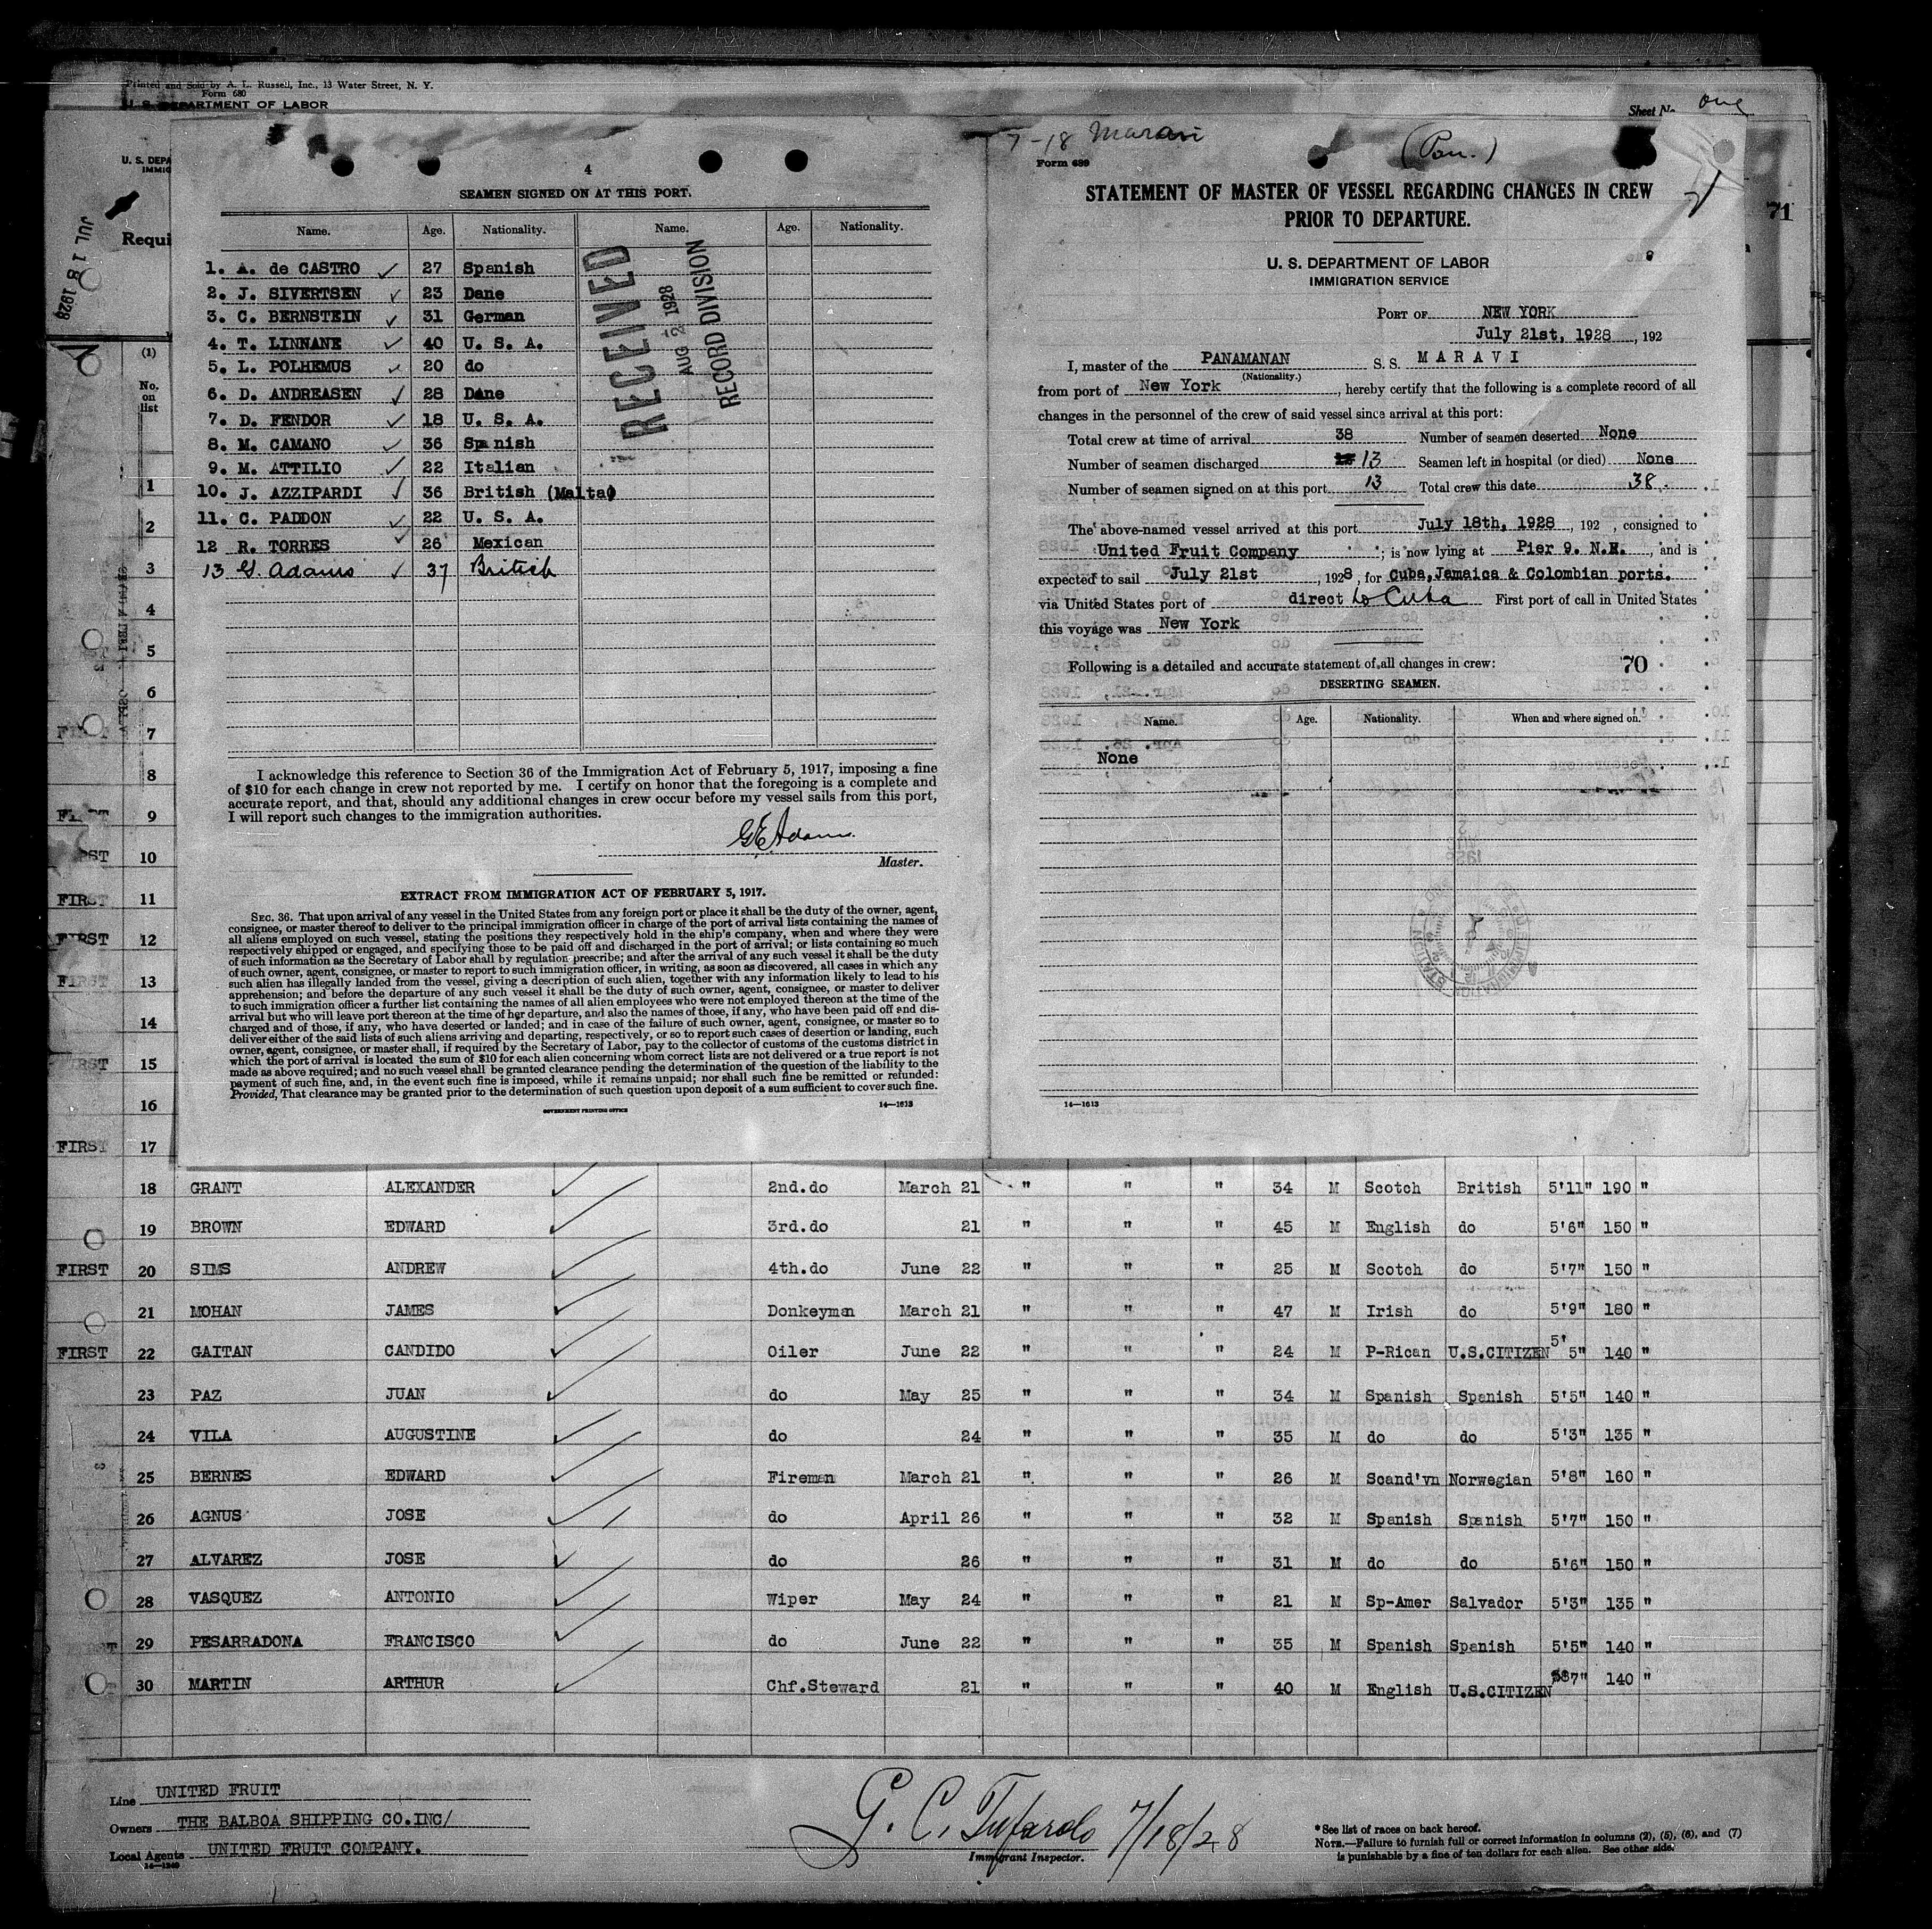 Printed and Sold by A. L. Russell, Inc., 13 Water Street, N. Y.
Form 680
U. S. DEPARTMENT OF LABOR
Sheet No. one
U. S. DEPA
IMMIG
JUL 18 1928
Requi
71
4
SEAMEN SIGNED ON AT THIS PORT.
Name. Age. Nationality. Name. Age. Nationality.
1. A. de CASTRO ✓ 27 Spanish
2. J. SIVERTSEN ✓ 23 Dane
3. C. BERNSTEIN ✓ 31 German
4. T. LINNANE ✓ 40 U. S. A.
5. L. POLHEMUS ✓ 20 do
6. D. ANDREASEN ✓ 28 Dane
7. D. FENDOR ✓ 18 U. S. A.
8. M. CAMANO ✓ 36 Spanish
9. M. ATTILIO ✓ 22 Italian
10. J. AZZIPARDI ✓ 36 British (Malta)
11. C. PADDON ✓ 22 U. S. A.
12 R. TORRES ✓ 26 Mexican
13 G. Adams ✓ 37 British
RECEIVED
AUG 2 1928
RECORD DIVISION
I acknowledge this reference to Section 36 of the Immigration Act of February 5, 1917, imposing a fine
of $10 for each change in crew not reported by me. I certify on honor that the foregoing is a complete and
accurate report, and that, should any additional changes in crew occur before my vessel sails from this port,
I will report such changes to the immigration authorities.
G E Adams.
Master.
EXTRACT FROM IMMIGRATION ACT OF FEBRUARY 5, 1917.
SEC. 36. That upon arrival of any vessel in the United States from any foreign port or place it shall be the duty of the owner, agent,
consignee, or master thereof to deliver to the principal immigration officer in charge of the port of arrival lists containing the names of
all aliens employed on such vessel, stating the positions they respectively hold in the ship's company, when and where they were
respectively shipped or engaged, and specifying those to be paid off and discharged in the port of arrival; or lists containing so much
of such information as the Secretary of Labor shall by regulation prescribe; and after the arrival of any such vessel it shall be the duty
of such owner, agent, consignee, or master to report to such immigration officer, in writing, as soon as discovered, all cases in which any
such alien has illegally landed from the vessel, giving a description of such alien, together with any information likely to lead to his
apprehension; and before the departure of any such vessel it shall be the duty of such owner, agent, consignee, or master to deliver
to such immigration officer a further list containing the names of all alien employees who were not employed thereon at the time of the
arrival but who will leave port thereon at the time of her departure, and also the names of those, if any, who have been paid off and dis-
charged and of those, if any, who have deserted or landed; and in case of the failure of such owner, agent, consignee, or master so to
deliver either of the said lists of such aliens arriving and departing, respectively, or so to report such cases of desertion or landing, such
owner, agent, consignee, or master shall, if required by the Secretary of Labor, pay to the collector of customs of the customs district in
which the port of arrival is located the sum of $10 for each alien concerning whom correct lists are not delivered or a true report is not
made as above required; and no such vessel shall be granted clearance pending the determination of the question of the liability to the
payment of such fine, and, in the event such fine is imposed, while it remains unpaid; nor shall such fine be remitted or refunded:
Provided, That clearance may be granted prior to the determination of such question upon deposit of a sum sufficient to cover such fine.
GOVERNMENT PRINTING OFFICE 14—1613
7-18 Maravi (Pan.)
Form 689
STATEMENT OF MASTER OF VESSEL REGARDING CHANGES IN CREW
PRIOR TO DEPARTURE.
U. S. DEPARTMENT OF LABOR
IMMIGRATION SERVICE
PORT OF NEW YORK
July 21st, 1928, 192
I, master of the PANAMANAN S. S. MARAVI
(Nationality.)
from port of New York, hereby certify that the following is a complete record of all
changes in the personnel of the crew of said vessel since arrival at this port:
Total crew at time of arrival 38 Number of seamen deserted None
Number of seamen discharged 13 Seamen left in hospital (or died) None
Number of seamen signed on at this port 13 Total crew this date 38.
The above-named vessel arrived at this port July 18th, 1928, 192 , consigned to
United Fruit Company; is now lying at Pier 9. N.R., and is
expected to sail July 21st, 1928, for Cuba, Jamaica & Colombian ports.
via United States port of direct to Cuba First port of call in United States
this voyage was New York
Following is a detailed and accurate statement of all changes in crew: 70
DESERTING SEAMEN.
Name. Age. Nationality. When and where signed on.
None
14—1613
(1)
No.
on
list
1
2
3
4
5
6
7
8
FIRST 9
FIRST 10
FIRST 11
FIRST 12
FIRST 13
14
FIRST 15
16
FIRST 17
18 GRANT ALEXANDER ✓ 2nd.do March 21 " " " 34 M Scotch British 5'11" 190 "
19 BROWN EDWARD ✓ 3rd.do 21 " " " 45 M English do 5'6" 150 "
FIRST 20 SIMS ANDREW ✓ 4th.do June 22 " " " 25 M Scotch do 5'7" 150 "
21 MOHAN JAMES ✓ Donkeyman March 21 " " " 47 M Irish do 5'9" 180 "
FIRST 22 GAITAN CANDIDO ✓ Oiler June 22 " " " 24 M P-Rican U.S.CITIZEN 5' 5" 140 "
23 PAZ JUAN ✓ do May 25 " " " 34 M Spanish Spanish 5'5" 140 "
24 VILA AUGUSTINE ✓ do 24 " " " 35 M do do 5'3" 135 "
25 BERNES EDWARD ✓ Fireman March 21 " " " 26 M Scand'vn Norwegian 5'8" 160 "
26 AGNUS JOSE ✓ do April 26 " " " 32 M Spanish Spanish 5'7" 150 "
27 ALVAREZ JOSE ✓ do 26 " " " 31 M do do 5'6" 150 "
28 VASQUEZ ANTONIO ✓ Wiper May 24 " " " 21 M Sp-Amer Salvador 5'3" 135 "
FIRST 29 PESARRADONA FRANCISCO ✓ do June 22 " " " 35 M Spanish Spanish 5'5" 140 "
30 MARTIN ARTHUR ✓ Chf.Steward 21 " " " 40 M English U.S.CITIZEN 7" 140 "
Line UNITED FRUIT
Owners THE BALBOA SHIPPING CO.INC/
Local Agents UNITED FRUIT COMPANY.
14—1240
G. C. Tufarolo 7/18/28
Immigrant Inspector.
*See list of races on back hereof.
NOTE.—Failure to furnish full or correct information in columns (2), (5), (6), and (7)
is punishable by a fine of ten dollars for each alien. See other side.